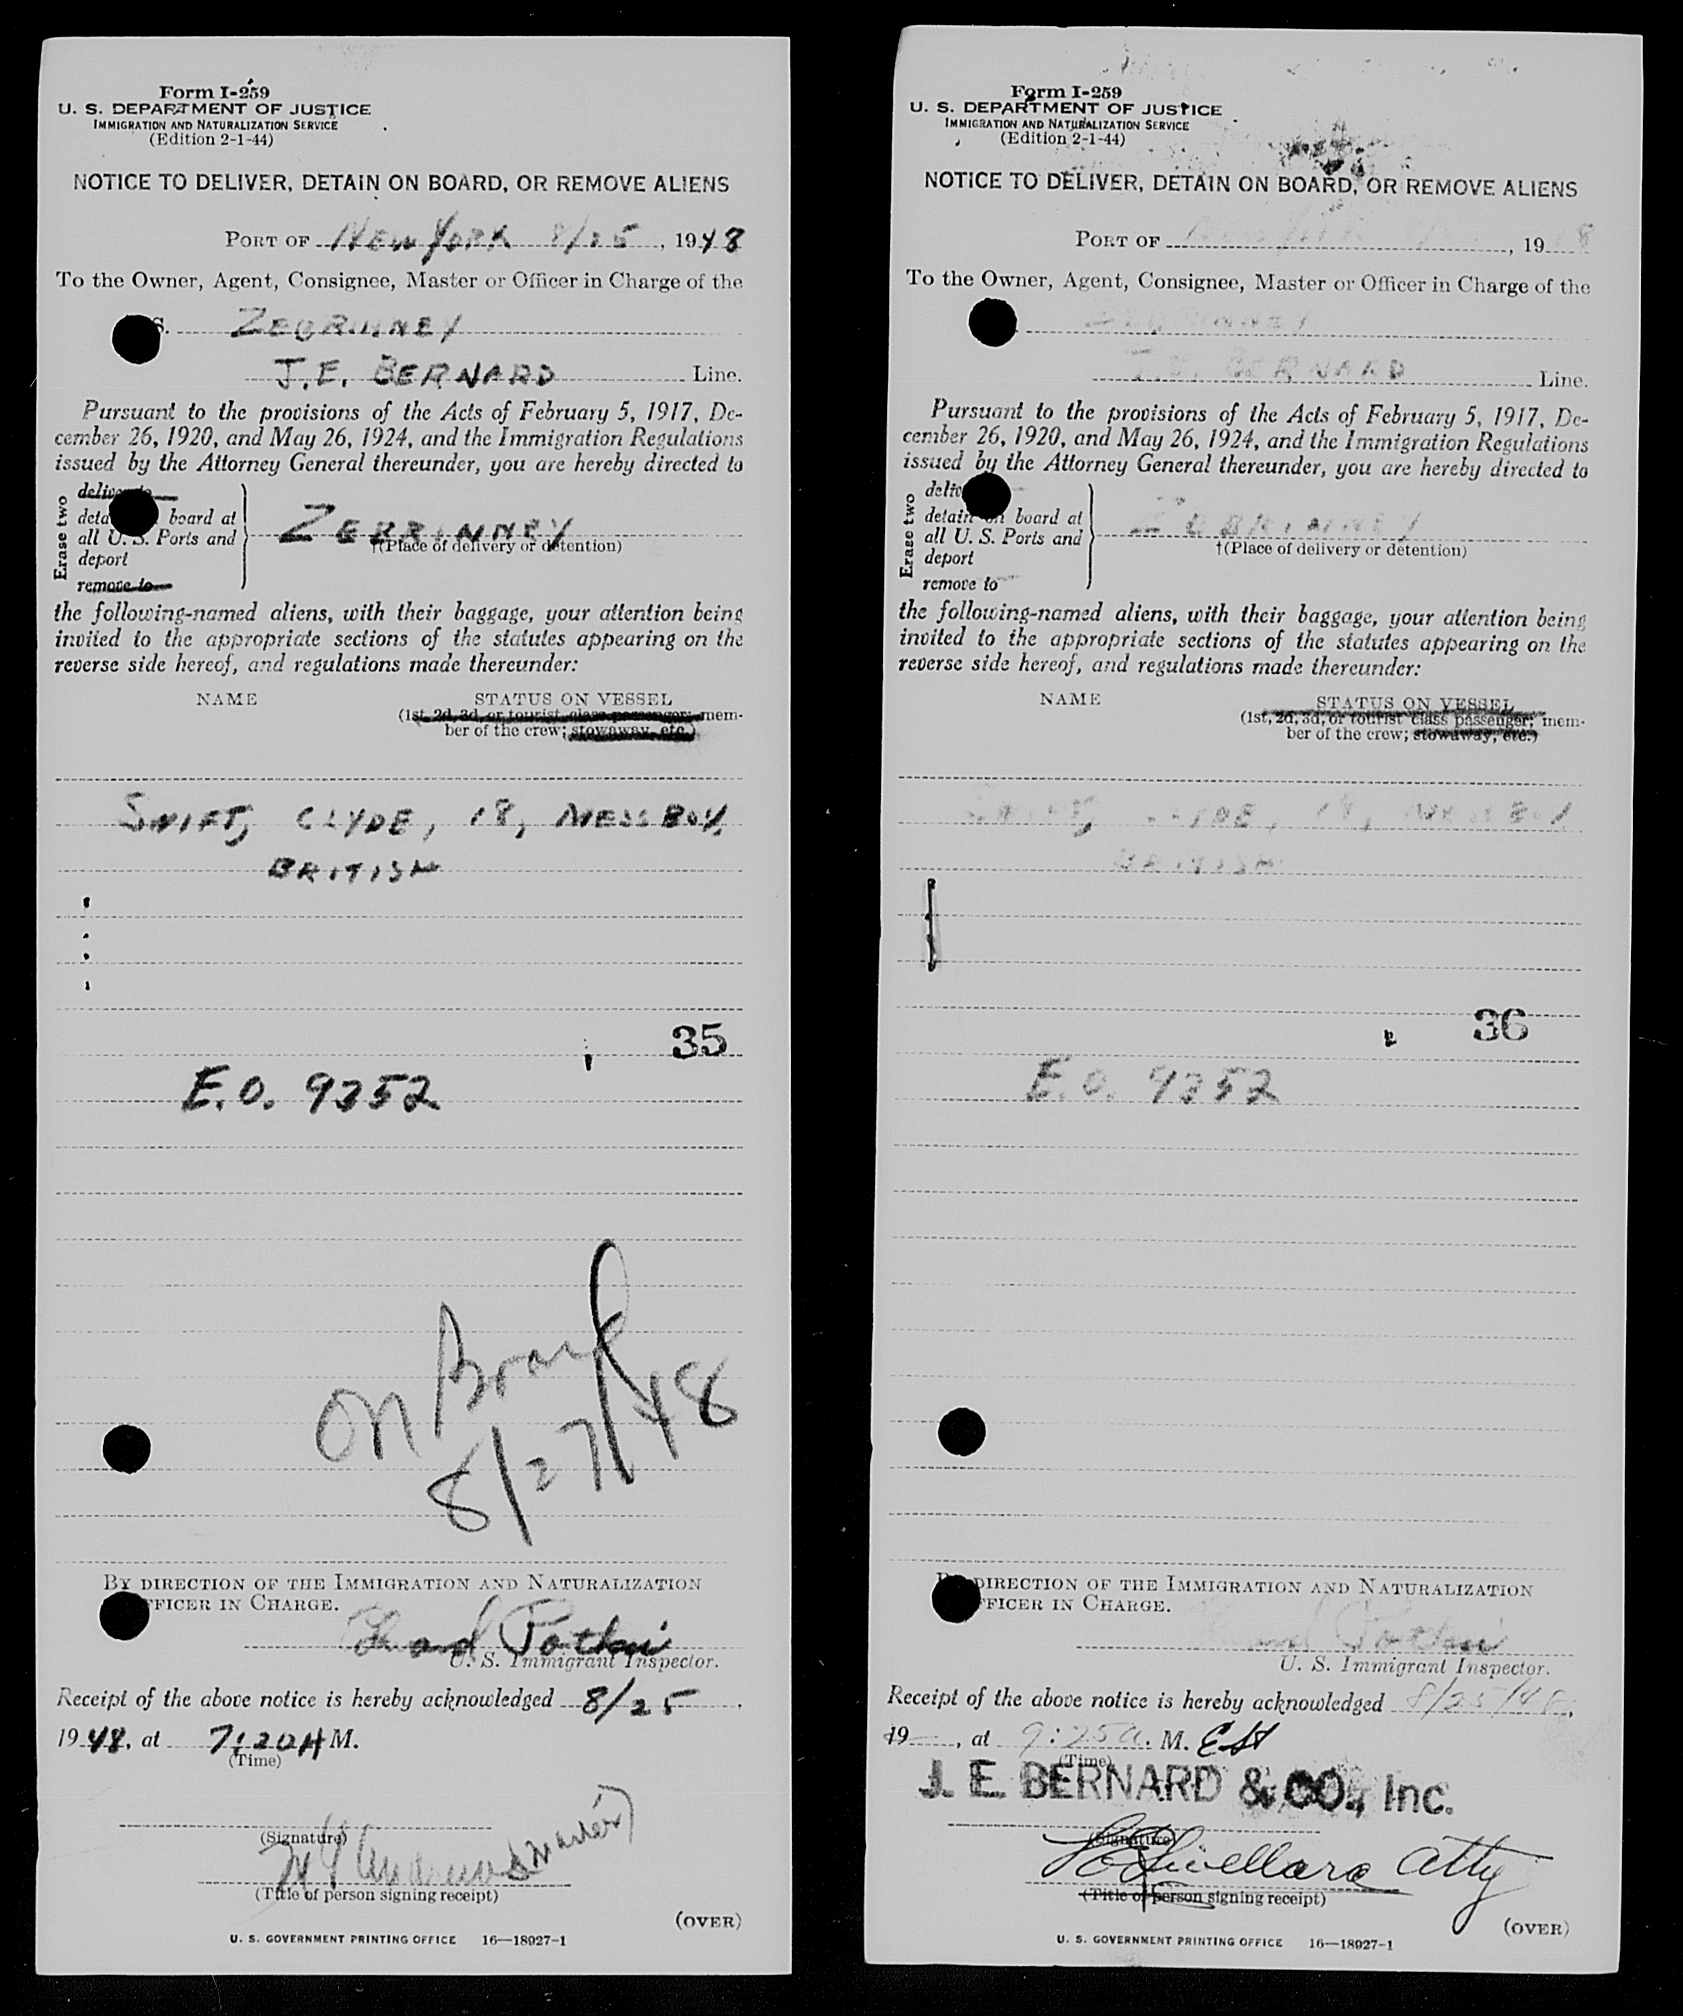 Form I-259
U. S. DEPARTMENT OF JUSTICE
IMMIGRATION AND NATURALIZATION SERVICE
(Edition 2-1-44)
NOTICE TO DELIVER, DETAIN ON BOARD, OR REMOVE ALIENS
PORT OF NEW YORK 8/25, 1948
To the Owner, Agent, Consignee, Master or Officer in Charge of the
S. ZEBRINNEY
J. E. BERNARD Line.
Pursuant to the provisions of the Acts of February 5, 1917, De-
cember 26, 1920, and May 26, 1924, and the Immigration Regulations
issued by the Attorney General thereunder, you are hereby directed to
Erase two
deliver to
detain on board at
all U. S. Ports and
deport
remove to
ZEBRINNEY
†(Place of delivery or detention)
the following-named aliens, with their baggage, your attention being
invited to the appropriate sections of the statutes appearing on the
reverse side hereof, and regulations made thereunder:
NAME STATUS ON VESSEL
(1st, 2d, 3d, or tourist class passenger; mem-
ber of the crew; stowaway, etc.)
SWIFT, CLYDE, 18, MESSBOY,
BRITISH
35
E.O. 9352
On Board
8/27/48
BY DIRECTION OF THE IMMIGRATION AND NATURALIZATION
OFFICER IN CHARGE.
U. S. Immigrant Inspector.
Receipt of the above notice is hereby acknowledged 8/25,
1948, at 7:20 A M.
(Time)
(Signature)
(Master)
(Title of person signing receipt)
(OVER)
U. S. GOVERNMENT PRINTING OFFICE 16—18927-1
Form I-259
U. S. DEPARTMENT OF JUSTICE
IMMIGRATION AND NATURALIZATION SERVICE
(Edition 2-1-44)
NOTICE TO DELIVER, DETAIN ON BOARD, OR REMOVE ALIENS
PORT OF NEW YORK, 19 8
To the Owner, Agent, Consignee, Master or Officer in Charge of the
ZEBRINNEY
J. E. BERNARD Line.
Pursuant to the provisions of the Acts of February 5, 1917, De-
cember 26, 1920, and May 26, 1924, and the Immigration Regulations
issued by the Attorney General thereunder, you are hereby directed to
Erase two
deliver to
detain on board at
all U. S. Ports and
deport
remove to
ZEBRINNEY
†(Place of delivery or detention)
the following-named aliens, with their baggage, your attention being
invited to the appropriate sections of the statutes appearing on the
reverse side hereof, and regulations made thereunder:
NAME STATUS ON VESSEL
(1st, 2d, 3d, or tourist class passenger; mem-
ber of the crew; stowaway, etc.)
SWIFT, CLYDE, 18, MESSBOY
BRITISH
36
E.O. 9352
BY DIRECTION OF THE IMMIGRATION AND NATURALIZATION
OFFICER IN CHARGE.
U. S. Immigrant Inspector.
Receipt of the above notice is hereby acknowledged 8/25/48,
19 , at 9:25 a. M. EST
(Time)
J. E. BERNARD & CO., Inc.
(Signature)
Atty
(Title of person signing receipt)
(OVER)
U. S. GOVERNMENT PRINTING OFFICE 16—18927-1